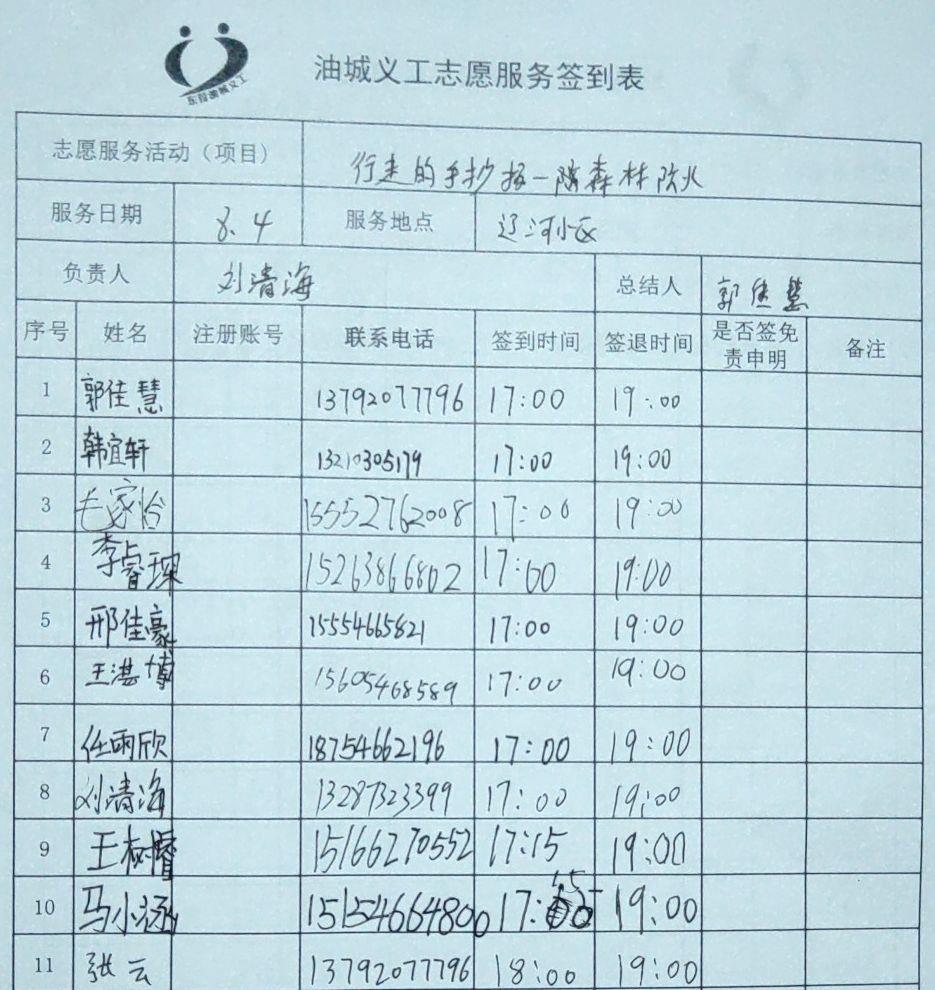 东营油城义工
油城义工志愿服务签到表
志愿服务活动（项目） 行走的手抄报一 森林防火
服务日期 8.4 服务地点 辽河小区
负责人 刘清海 总结人 郭佳慧
序号 姓名 注册账号 联系电话 签到时间 签退时间 是否签免责申明 备注
1 郭佳慧 13792077796 17:00 19:00
2 韩宜轩 13210305179 17:00 19:00
3 毛家怡 15552762008 17:00 19:00
4 李睿琛 15263866802 17:00 19:00
5 邢佳豪 15554665821 17:00 19:00
6 王湛博 15605468589 17:00 19:00
7 任雨欣 18754662196 17:00 19:00
8 刘清海 13287323399 17:00 19:00
9 王树 15166270552 17:15 19:00
10 马小涵 15154664800 17: 19:00
11 张云 13792077796 18:00 19:00